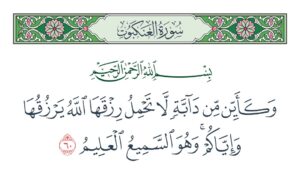 سُورَةُ الْعَنكَبُوتِ
بِسْمِ اللَّهِ الرَّحْمَٰنِ الرَّحِيمِ
وَكَأَيِّن مِّن دَابَّةٍ لَّا تَحْمِلُ رِزْقَهَا اللَّهُ يَرْزُقُهَا
وَإِيَّاكُمْ ۚ وَهُوَ السَّمِيعُ الْعَلِيمُ ٦٠